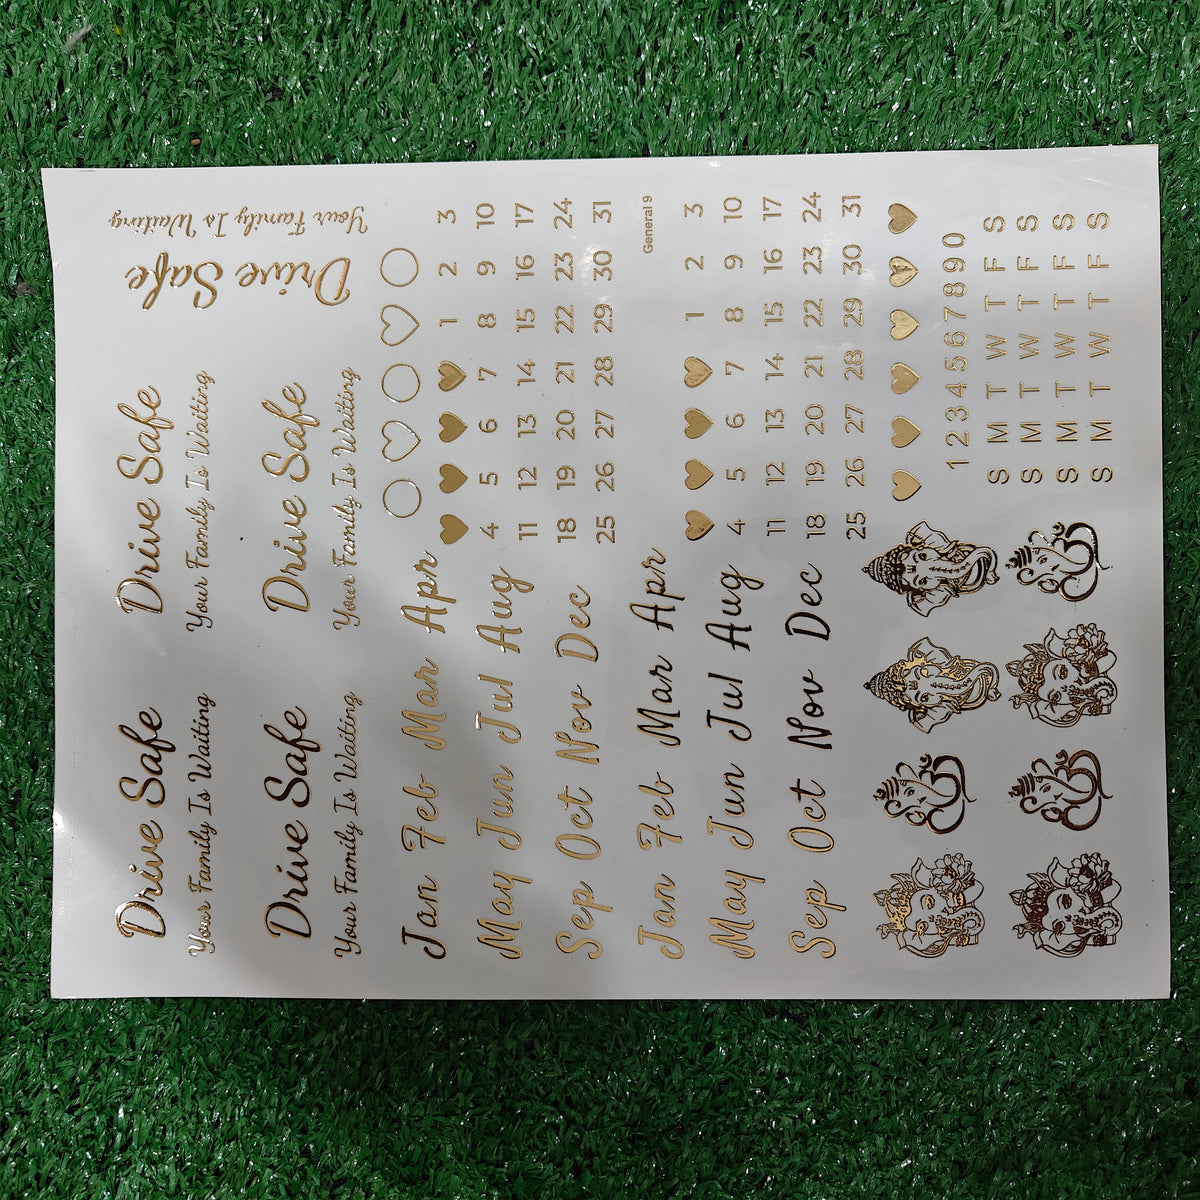 Drive Safe
Your Family Is Waiting
Drive Safe
Your Family Is Waiting
Drive Safe
Your Family Is Waiting
Drive Safe
Your Family Is Waiting
Drive Safe
Your Family Is Waiting
Jan Feb Mar Apr
May Jun Jul Aug
Sep Oct Nov Dec
1 2 3
4 5 6 7 8 9 10
11 12 13 14 15 16 17
18 19 20 21 22 23 24
25 26 27 28 29 30 31
General 9
Jan Feb Mar Apr
May Jun Jul Aug
Sep Oct Nov Dec
1 2 3
4 5 6 7 8 9 10
11 12 13 14 15 16 17
18 19 20 21 22 23 24
25 26 27 28 29 30 31
1234567890
S M T W T F S
S M T W T F S
S M T W T F S
S M T W T F S